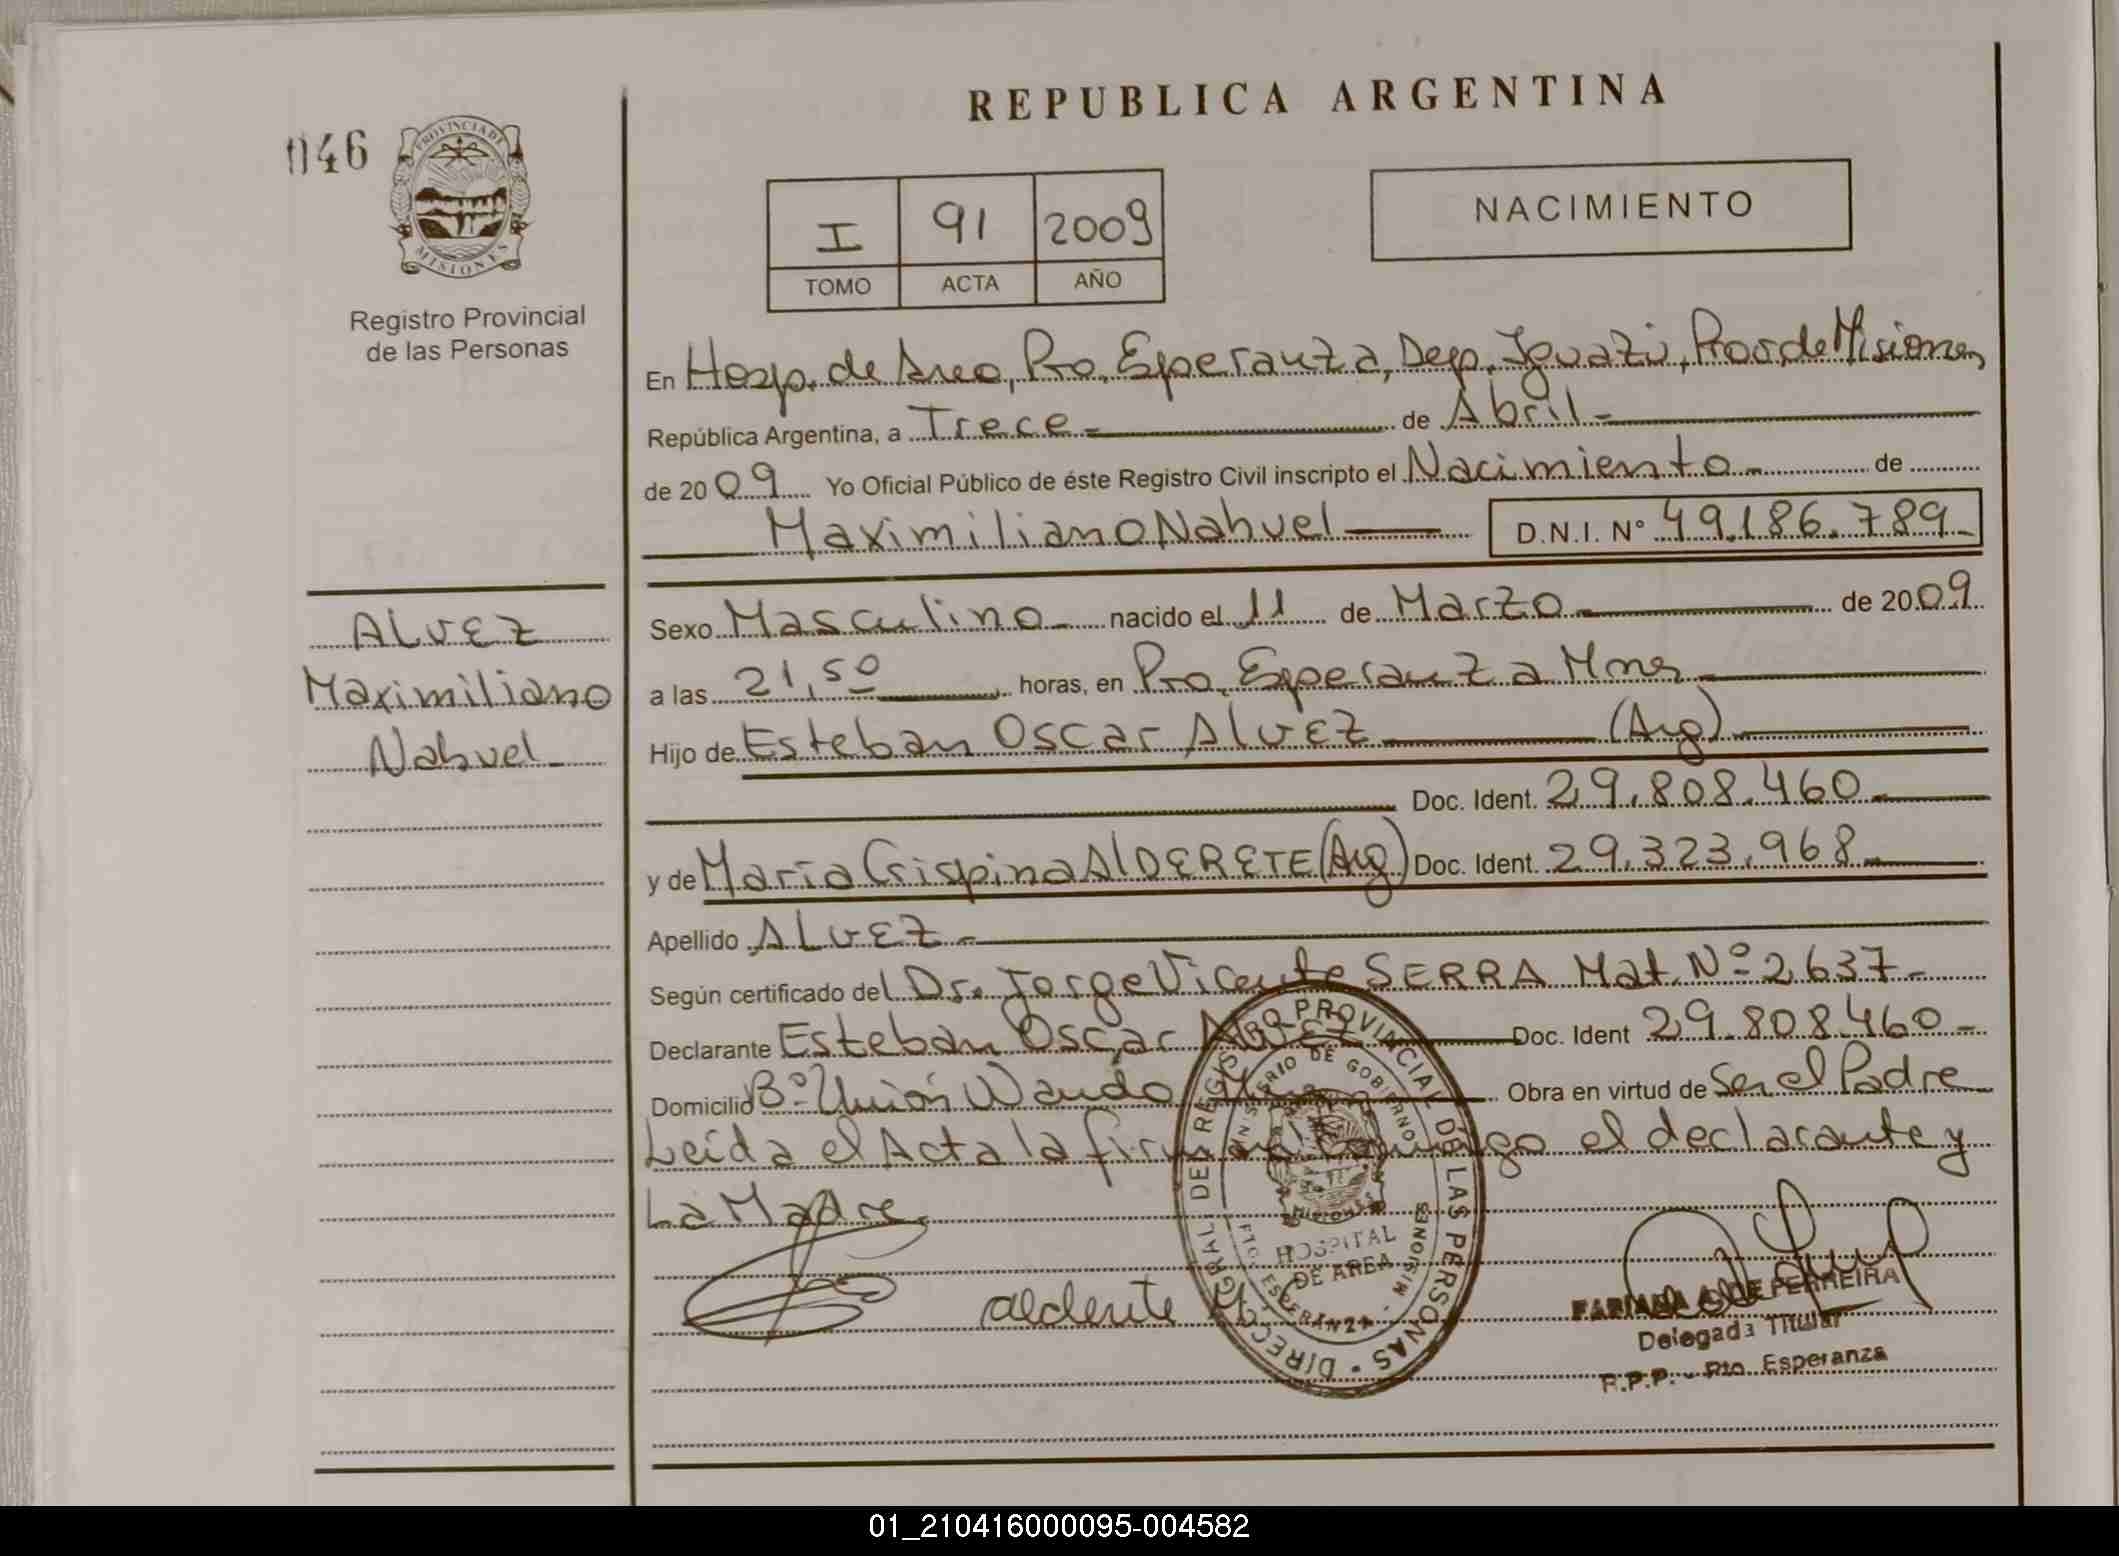 REPUBLICA ARGENTINA
046
PROVINCIA DE
MISIONES
Registro Provincial
de las Personas
I 91 2009
TOMO ACTA AÑO
NACIMIENTO
En Hosp. de Area, Pto. Esperanza, Dep. Iguazú, Prov. de Misiones,
República Argentina, a Trece de Abril
de 2009 Yo Oficial Público de éste Registro Civil inscripto el Nacimiento de
Maximiliano Nahuel D.N.I. Nº 49.186.789
ALVEZ
Maximiliano
Nahuel
Sexo Masculino nacido el 11 de Marzo de 2009
a las 21,50 horas, en Pto. Esperanza Mnes
Hijo de Esteban Oscar Alvez (Arg)
Doc. Ident. 29.808.460
y de María Crispina AlDERETE (Arg) Doc. Ident. 29.323.968
Apellido ALVEZ
Según certificado del Dr. Jorge Vicente SERRA Mat. Nº 2637
Declarante Esteban Oscar Alvez Doc. Ident 29.808.460
Domicilio Bº Unión Wanda Obra en virtud de Ser el Padre
Leída el Acta la firman conmigo el declarante y
La Madre
DIREC. GRAL. DE REGISTRO PROVINCIAL DE LAS PERSONAS
MINISTERIO DE GOBIERNO
HOSPITAL
DE AREA
PTO. ESPERANZA - MISIONES
alderete M.
FABIANA A. DE FERREIRA
Delegada Titular
R.P.P. - Pto. Esperanza
01_210416000095-004582